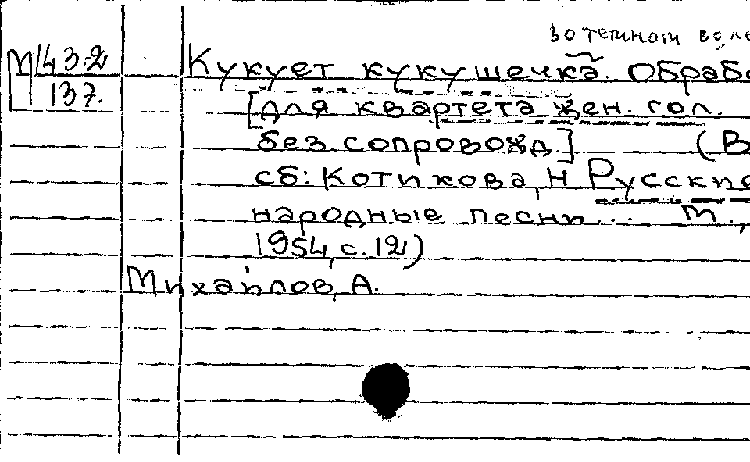 во темном
М 43-2 Кукует кукушечка. Обраб
137. [для квартета жен. гол.
без сопровожд.] (В
сб: Котикова, Н Русские
народные песни... М.,
1954, с. 12)
Михайлов, А.